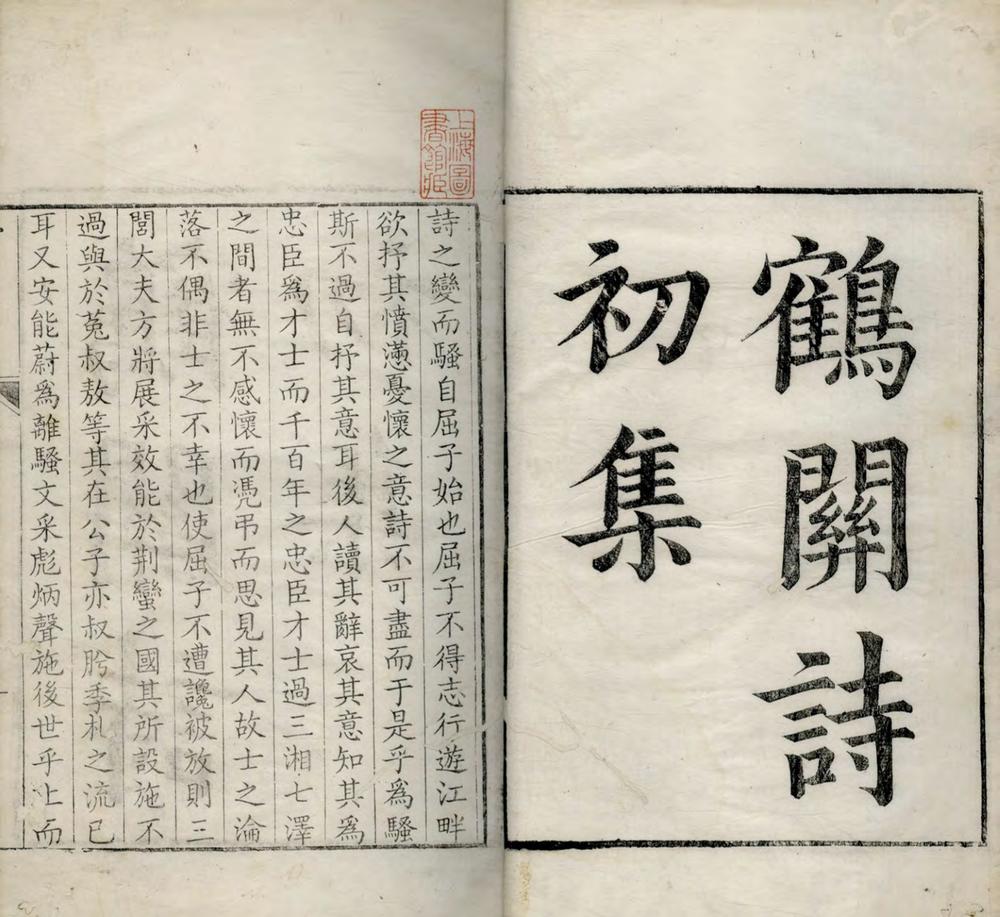 鶴關詩
初集
上海圖
書館藏
詩之變而騷自屈子始也屈子不得志行遊江畔
欲抒其憤懣憂懷之意詩不可盡而于是乎為騷
斯不過自抒其意耳後人讀其辭哀其意知其爲
忠臣爲才士而千百年之忠臣才士過三湘七澤
之間者無不感懷而憑弔而思見其人故士之淪
落不偶非士之不幸也使屈子不遭讒被放則三
閭大夫方將展采效能於荆蠻之國其所設施不
過與於菟叔敖等其在公子亦叔肸季札之流已
耳又安能蔚爲離騷文采彪炳聲施後世乎上而